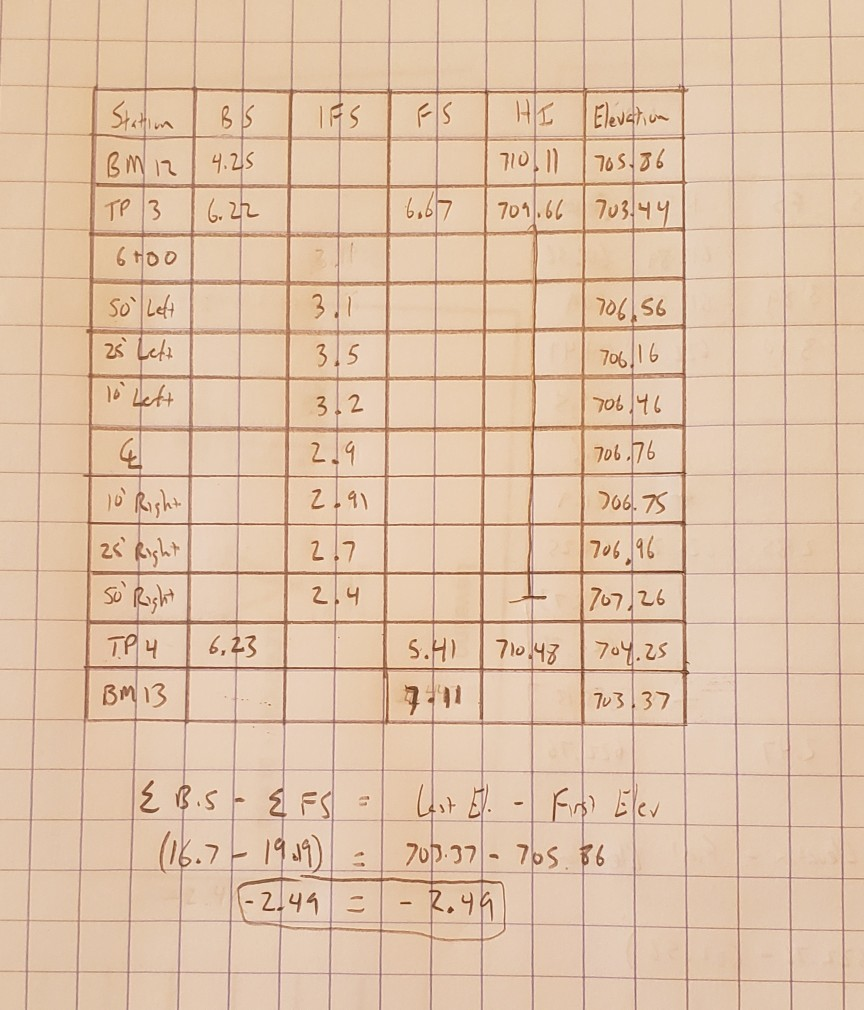 Station BS IFS FS HI Elevation
BM 12 4.25 710.11 705.86
TP 3 6.22 6.67 709.66 703.44
6+00
50' Left 3.1 706.56
25' Left 3.5 706.16
10' Left 3.2 706.46
℄ 2.9 706.76
10' Right 2.91 706.75
25' Right 2.7 706.96
50' Right 2.4 707.26
TP 4 6.23 5.41 710.48 704.25
BM 13 7.11 703.37
Σ B.S - Σ FS = Last El. - First Elev
(16.7 - 19.19) = 703.37 - 705.86
-2.49 = -2.49